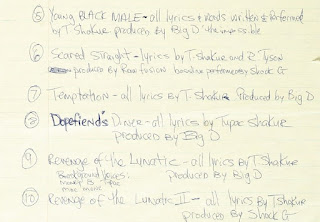 ⑤ Young BLACK MALE - all lyrics & words written & performed
by T Shakur produced by Big D the impossible
⑥ Scared Straight - lyrics by T. Shakur and R. Tyson
produced by Raw fusion performed by Shock G
⑦ Temptation - all lyrics by T. Shakur Produced by Big D
⑧ Dopefiends' Diner - all lyrics by Tupac Shakur
PRODUCED BY Big D
⑨ Revenge of the Lunatic - all lyrics by T. Shakur
Background Voices: Produced by Big D
⑩ Revenge of the Lunatic II - all lyrics by T Shakur
PRODUCED BY Shock G